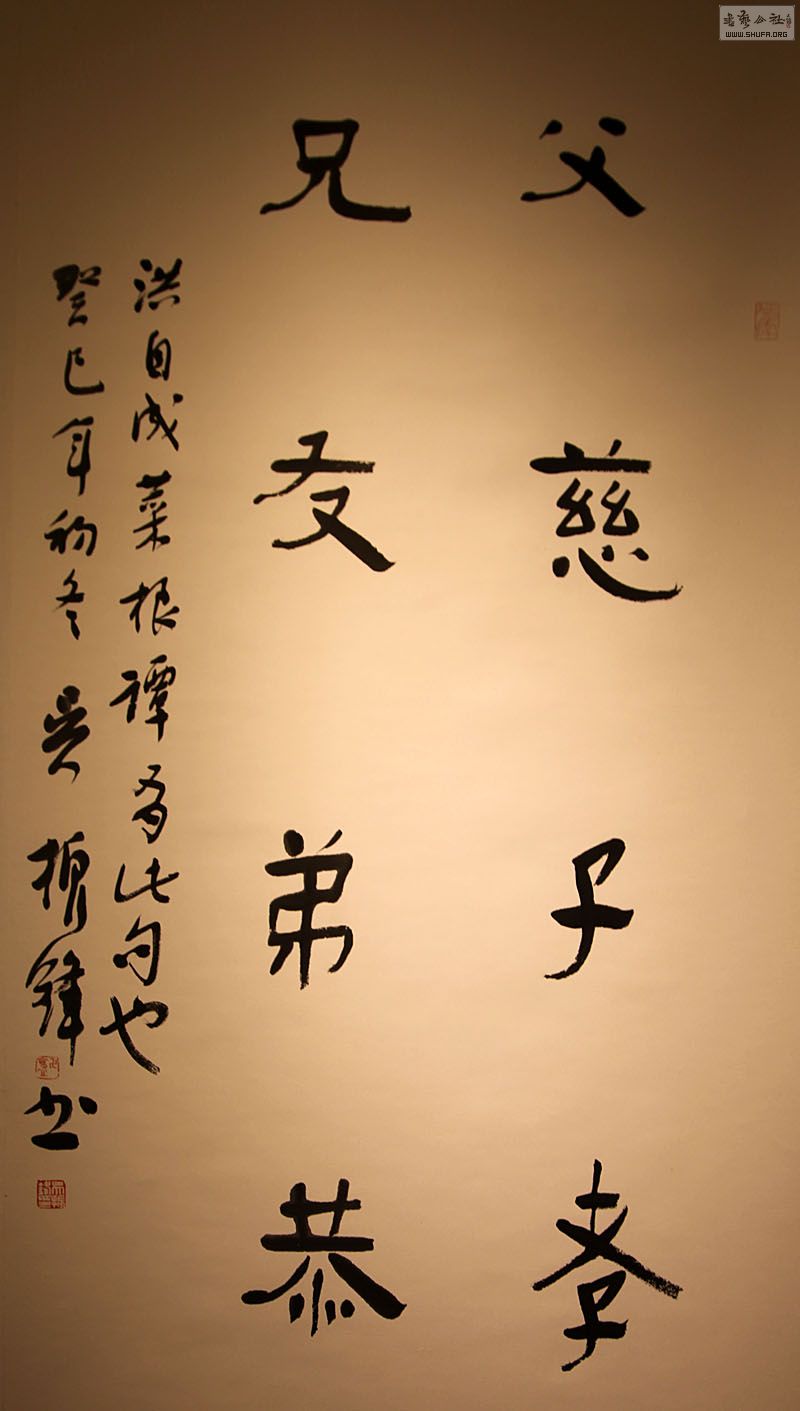 父慈子孝
兄友弟恭
洪自成菜根譚有此句也
癸巳年初冬 吳振鋒书
书艺公社
WWW.SHUFA.ORG